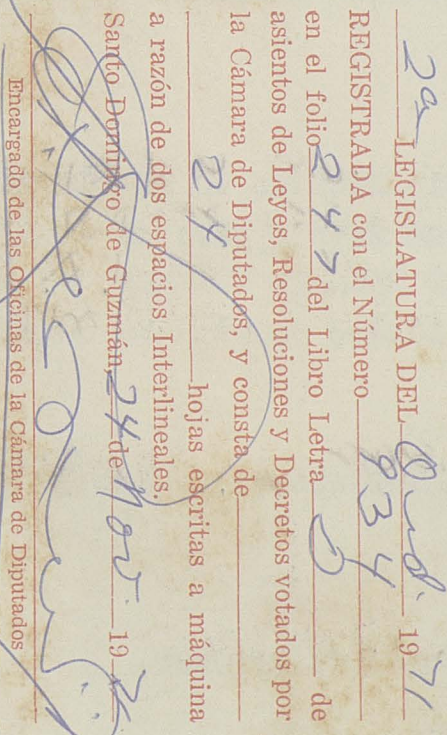 2ª LEGISLATURA DEL Ord. 1971
REGISTRADA con el Número 934
en el folio 247 del Libro Letra D de
asientos de Leyes, Resoluciones y Decretos votados por
la Cámara de Diputados, y consta de
24 hojas escritas a máquina
a razón de dos espacios Interlineales.
Santo Domingo de Guzmán, 24 de Nov. 19
Encargado de las Oficinas de la Cámara de Diputados